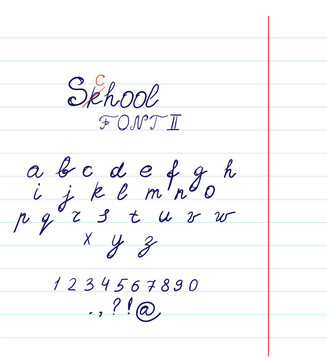 Skhool
c
FONT II
a b c d e f g h
i j k l m n o
p q r s t u v w
x y z
1 2 3 4 5 6 7 8 9 0
. , ? ! @